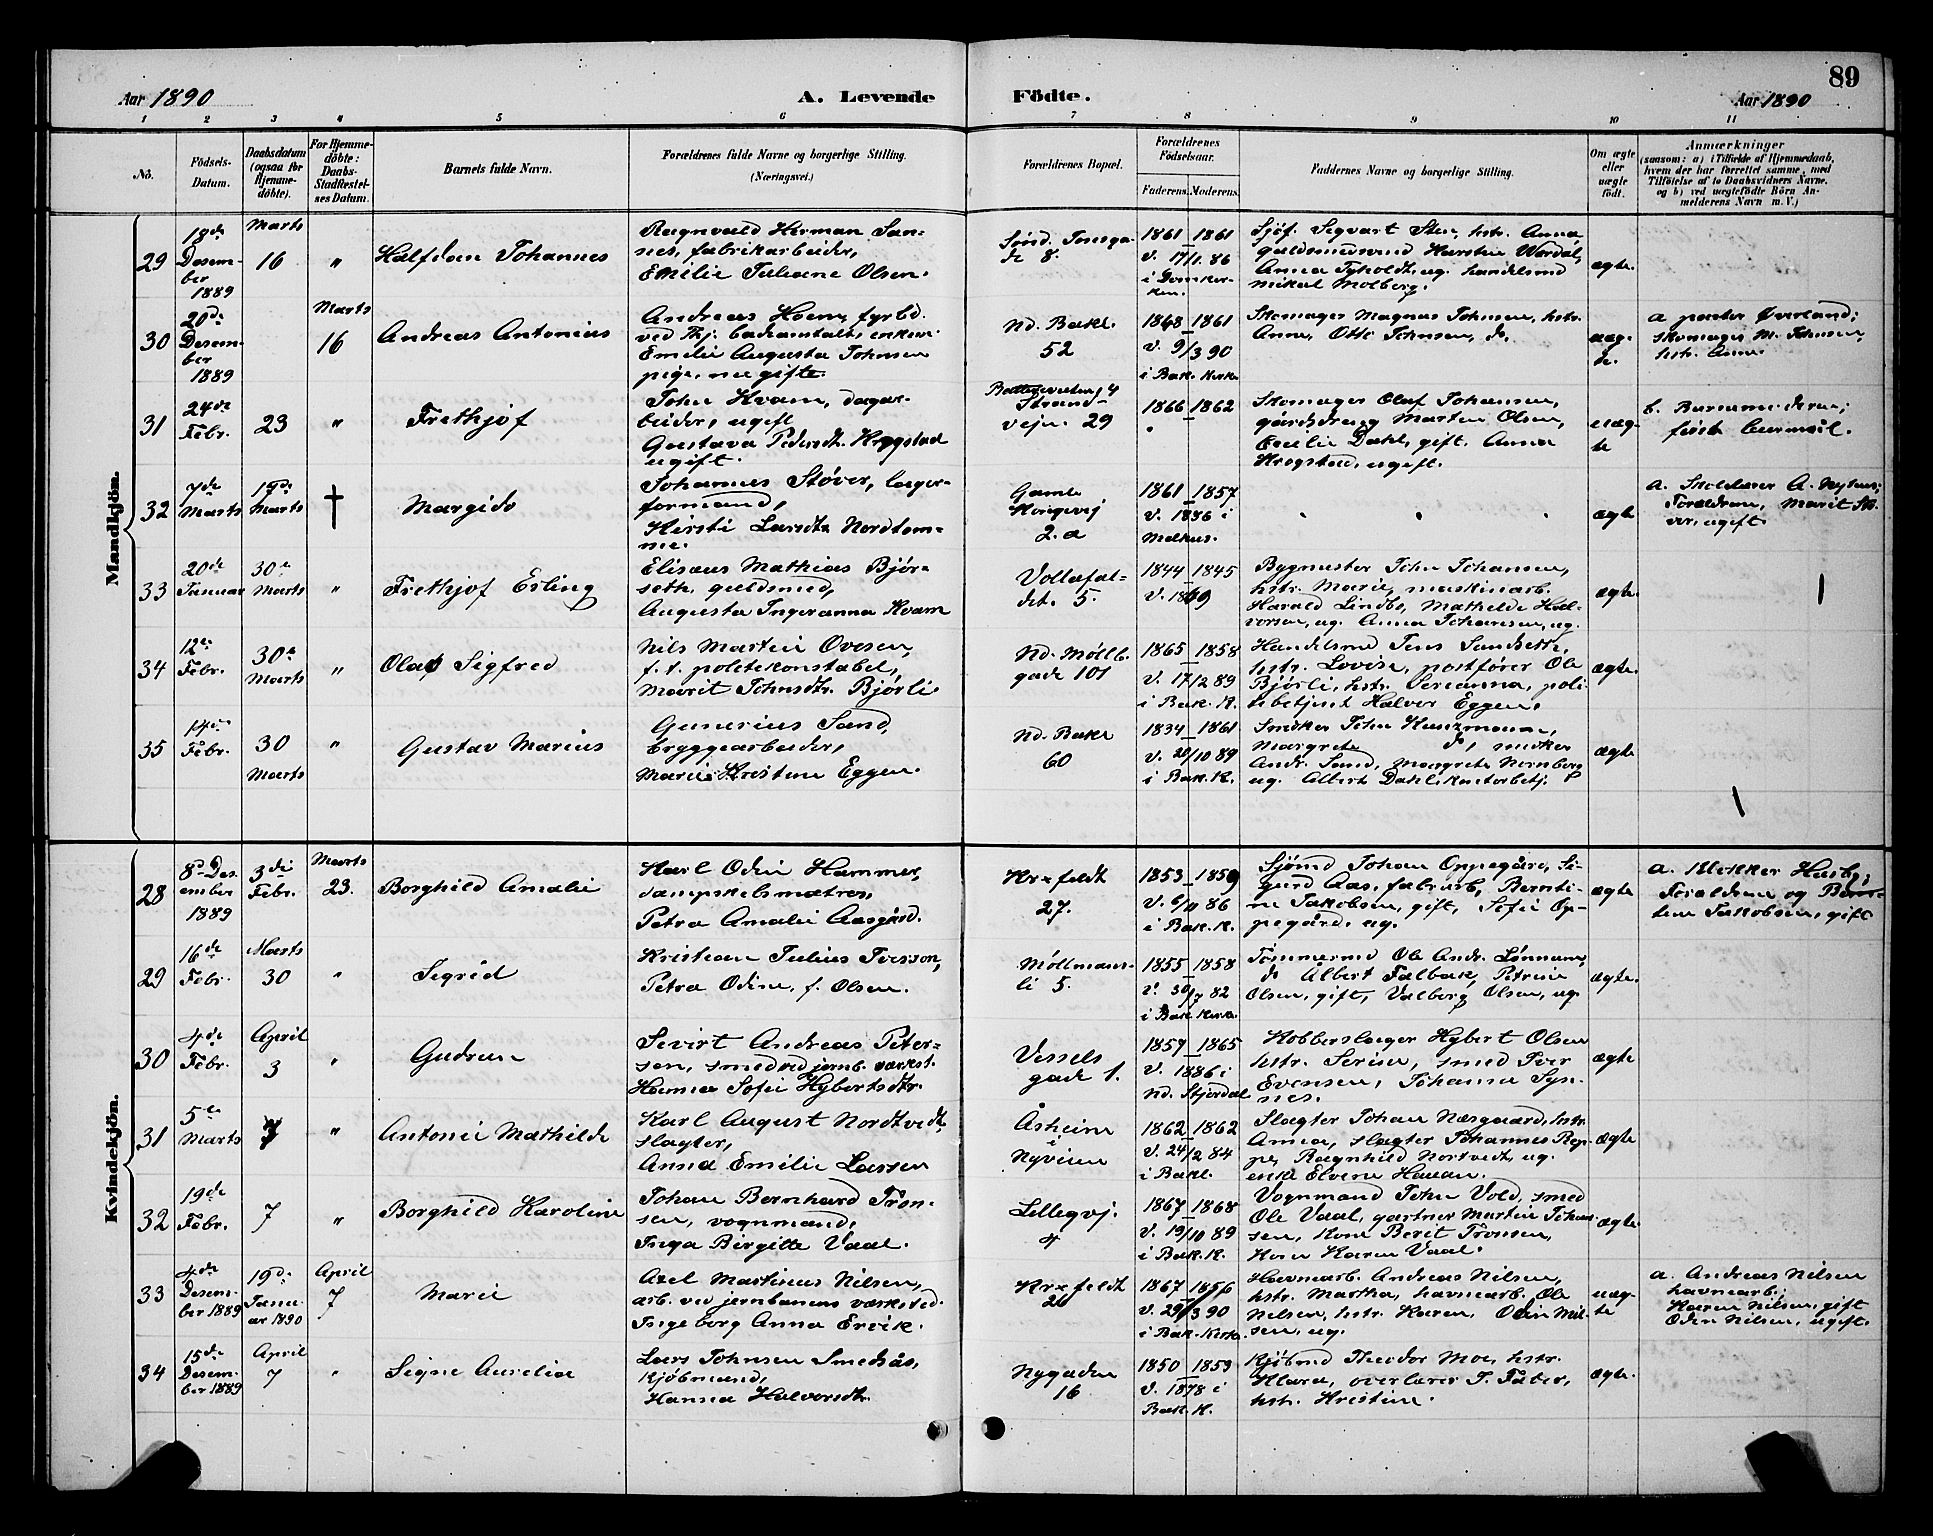 Aar 1890
A. Levende
Födte.
89
Aar 1890
1 2 3 4 5 6 7 8 9 10 11
No.
Födsels-
Datum.
Daabsdatum
(ogsaa for
Hjemme-
döbte).
For Hjemme-
döbte:
Daabs-
Stadfæstel-
ses Datum.
Barnets fulde Navn.
Forældrenes fulde Navne og borgerlige Stilling.
(Næringsvei.)
Forældrenes Bopæl.
Forældrenes
Födselsaar.
Faderens. Moderens.
Faddernes Navne og borgerlige Stilling.
Om ægte
eller
uægte
födt.
Anmærkninger
(saasom: a) i Tilfælde af Hjemmedaab,
hvem der har forrettet samme, med
Tilföielse af to Daabsvidners Navne,
og b) ved uægtefödte Börn An-
melderens Navn m. V.)
Mandkjön.
29
18de
Desem-
ber
1889
Marts
16
"
Halfdan Johannes
Ragnvald Herman San-
nes, fabrikarbeider,
Emilie Juliane Olsen.
Sønd. Tomtga-
de 8.
1861 - 1861
V. 17/11. 86
i Domkir-
ken.
Sjøf. Sigvart Sten, hstr. Anna,
guldsmedsvend Karsten Wardal,
Anna Tyholdt, ug. handelsmd
Mikal Molberg.
ægte.
30
20de
Desem-
ber
1889
Marts
16
Andreas Antonius
Andreas Hoem, fyrbd.
ved Thj. badeanstalt, enkem.
Emilie Augusta Johnsen
pige, nu gifte.
Nd. Bakl.
52
1848 - 1861
V. 9/3 90
i Bak. Kirke
Skomager Magnus Johnsen, hstr.
Anna, Otto Johnsen, do.
uæg-
te.
a pastor Øverland;
skomager M. Johnsen,
hstr. Anna.
31
24de
Febr.
23
"
Frethjof
John Kvam, dagar-
beider, ugift
Gustava Pedersdt. Krogstad
ugift.
Strand-
vejn. 29
1866 - 1862
Skomager Olaf Johansen,
gårdsdreng Martin Olsen,
Emilie Dahl, gift. Anna
Krogstad, ugift.
uæg-
te
b. Barnemoderen;
første leiermål.
32
7de
Marts
19de
Marts
†
Margido
Johannes Støver, lager-
formand,
Kirsti Larsdt. Nordtøm-
me.
Gamle
Kongevej
2.a
1861 - 1857
V. 1886 i
Melhus.
ægte
a. Skolelærer A. Nyhus;
Forældrene, Marit Stø-
ver, ugift.
33
20de
Januar
30te
Marts
"
Frethjof Erling
Elisæus Mathias Bjør-
seth, guldsmed,
Augusta Ingeranna Kvam
Vollafal-
det. 5.
1844 - 1845
V. 1869
Bygmester John Johansen,
hstr. Marie, maskinarb.
Harald Lindbo, Mathilde Hal-
vorsen, ug. Anna Johansen, ug.
ægte.
34
12te
Febr.
30te
Marts
"
Olaf Sigfred
Nils Martin Ovesen,
f. t. politikonstabel,
Marit Johnsdtr. Bjørli
Nd. Møllb.
gade 101
1865 - 1858
V. 17/2 89
i Bak. K.
Handelsmd Jens Sandseth,
hstr. Lovise, postfører Ole
Bjørli, hstr. Serianna, poli-
tibetjent Halvor Eggen.
ægte.
35
14de
Febr.
30
Marts
"
Gustav Marius
Gunerius Sand,
bryggearbeider,
Marie Kristine Eggen.
Nd. Bakl
60
1834 - 1861
V. 20/10 89
i Bak. K.
Snedker John Kunzmann,
Margrete do,
Andr. Sand, Margrete Nornberg
ug. Albert Dahl, kontorbetj.
ægte
Kvindekjön.
28
8de Des
ember
1889
3die
Febr.
Marts
23.
Borghild Amalie
Karl Odin Hammer,
dampskibsmatros,
Petra Amalie Aasgård.
Kr×feldt
27.
1853 - 1859
V. 6/10 86
i Bak. K.
Sjømd Johan Oppegård, Si-
gurd Aas, fabriarb, Bernti-
ne Jakobsen, gift, Sofie Op-
pegård, ug.
ægte
a. Klokker Husby;
Forældrene og Bernt-
ine Jakobsen, gift
29
16de
Febr.
Marts
30
"
Sigrid
Kristian Julius Iversson,
Petra Odine, f. Olsen.
Møllmans-
li 5.
1855 - 1858
V. 30/7 82
i Bak. Kirke.
Tømmermd Ole Andr. Lønnum,
do Albert Falbak, Petrine
Olsen, gift, Valborg Olsen, ug.
ægte.
30
4de
Febr.
April
3
"
Gudrun
Sevirt Andreas Peter-
sen, smed ved jernb. værkst.
Hanna Sofie Hybertsdtr.
Vessels
gade 1.
1857 - 1865
V. 1886 i
Nd. Stjørdal
Kobberslager Hybert Olsen
hstr. Serine, smed Iver
Evensen, Johanna Syn-
nes.
ægte
31
5te
Marts
7
"
Antonie Mathilde
Karl August Nordtvedt,
slagter,
Anna Emilie Larsen
Åsheim
i
Nyveien
1862 - 1862
V. 24/2 84
i Bakl.
Slagter Johan Næsgaard, hstr.
Anna, slagter Johannes Rep-
pe, Ragnhild Nortvedt, ug.
enke Elvine Hauan.
ægte
32
19de
Febr.
7
"
Borghild Karoline
Johan Bernhard Trøn-
sen, vognmand,
Inga Birgitte Vaal.
Lillegvj.
4
1867 - 1868
V. 19/10 89
i Bak. K.
Vognmand John Vold, smed
Ole Vaal, gartner Martin Johan-
sen, Kone Berit Trønsen,
Kone Karen Vaal.
ægte.
33
4de
Desem-
ber 1889
19de
Janu-
ar 1890
April
7
Marie
Axel Martinus Nilsen,
arb. ved jernbanens værksted.
Ingeborg Anna Ervik.
Kr×feldt
26
1867 - 1856
V. 29/3 90
i Bak. Kirke.
Havnearb. Andreas Nilsen,
hstr. Martha, havnearb. Ole
Nilsen, hstr. Karen, Odin Nil-
sen, ug.
uæg-
te
a. Andreas Nilsen
havnearb;
Karen Nilsen, gift
Odin Nilsen, ugift.
34
15de
Desem-
ber 1889
April
7
"
Signe Aurelia
Lars Johnsen Smedsås,
Kjøbmand,
Hanna Halvorsdt.
Nygaden
16
1850 - 1853
V. 1878 i
Bak. K.
Kjøbmd Theodor Moe, hstr.
Klara, overlærer J. Faber,
hstr. Kristine.
ægte.